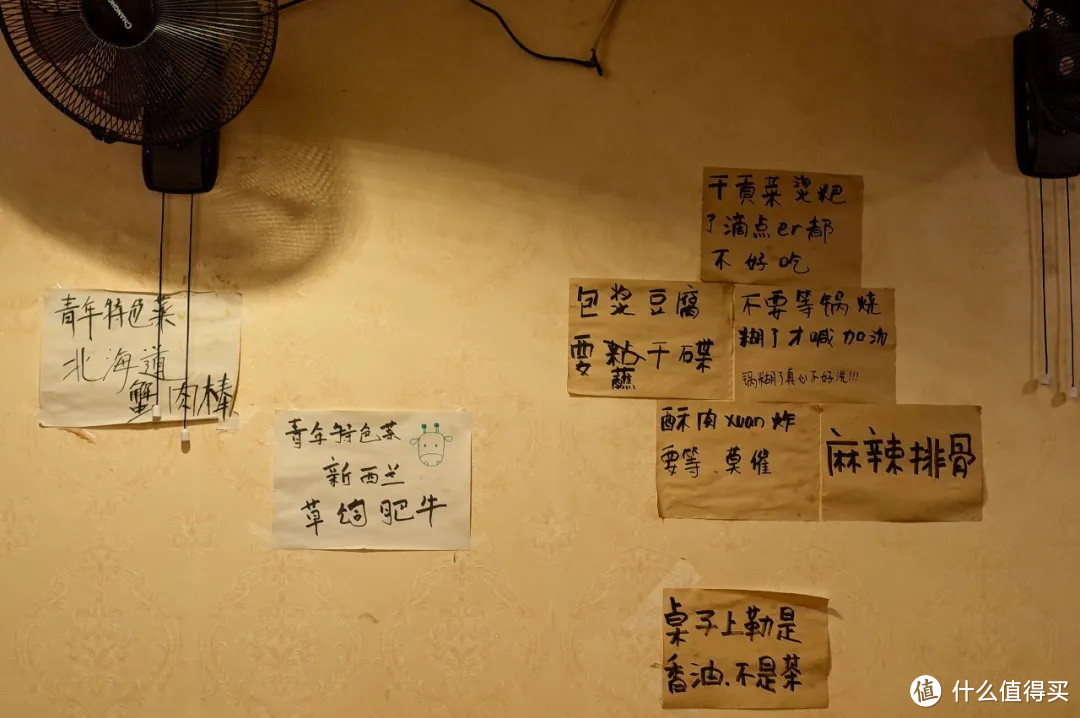 CHANGHONG
青年特色菜
北海道
蟹肉棒
青年特色菜
新西兰
草饲肥牛
干贡菜烫粑
了滴点er都
不好吃
包浆豆腐
要粘干碟
蘸
不要等锅烧
糊了才喊加汤
锅糊了真心不好洗!!!
酥肉xuan炸
要等、莫催
麻辣排骨
桌子上勒是
香油、不是茶
值 什么值得买